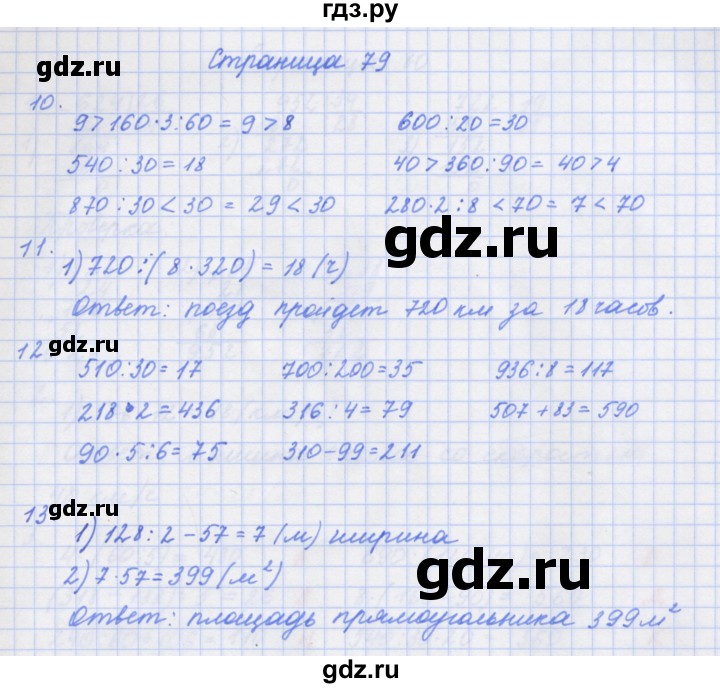 гдз.ру
gdz.ru
Страница 79
10.
9>160·3:60 = 9 > 8 600:20=30
540:30=18 40>360:90= 40>4
870:30<30 = 29<30 280·2:8 <70= 7<70
gdz.ru
11.
1) 720:(8·320) = 18 (ч)
Ответ: поезд пройдет 720 км за 18 часов.
gdz.ru
12
510:30=17 700:200=35 936:8=117
218·2=436 316:4=79 507+83=590
90·5:6=75 310-99=211
gdz.ru
13
1) 128:2-57=7 (м) ширина
gdz.ru
2) 7·57=399 (м²)
Ответ: площадь прямоугольника 399 м²
gdz.ru
гдз.ру